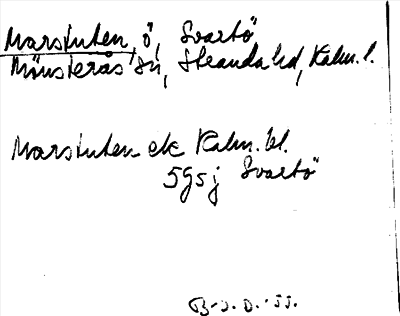 Marstuten, ö, Svartö
Mönsterås sn, Stranda hd, Kalm. l.
Marstuten ek Kalm. bl.
5g5j Svartö
B-J.D.-55.